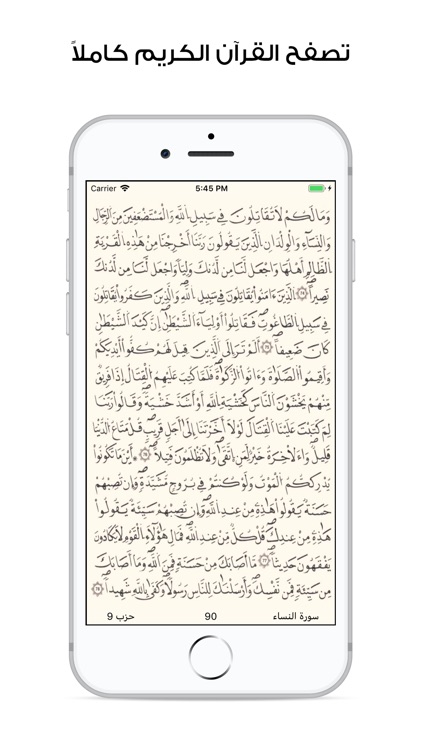 تصفح القرآن الكريم كاملاً
Carrier 5:45 PM
وَمَا لَكُمْ لَا تُقَاتِلُونَ فِي سَبِيلِ اللَّهِ وَالْمُسْتَضْعَفِينَ مِنَ الرِّجَالِ
وَالنِّسَاءِ وَالْوِلْدَانِ الَّذِينَ يَقُولُونَ رَبَّنَا أَخْرِجْنَا مِنْ هَٰذِهِ الْقَرْيَةِ
الظَّالِمِ أَهْلُهَا وَاجْعَل لَّنَا مِن لَّدُنكَ وَلِيًّا وَاجْعَل لَّنَا مِن لَّدُنكَ
نَصِيرًا ۝ الَّذِينَ ءَامَنُوا يُقَاتِلُونَ فِي سَبِيلِ اللَّهِ وَالَّذِينَ كَفَرُوا يُقَاتِلُونَ
فِي سَبِيلِ الطَّاغُوتِ فَقَاتِلُوا أَوْلِيَاءَ الشَّيْطَانِ إِنَّ كَيْدَ الشَّيْطَانِ
كَانَ ضَعِيفًا ۝ أَلَمْ تَرَ إِلَى الَّذِينَ قِيلَ لَهُمْ كُفُّوا أَيْدِيَكُمْ
وَأَقِيمُوا الصَّلَوٰةَ وَءَاتُوا الزَّكَوٰةَ فَلَمَّا كُتِبَ عَلَيْهِمُ الْقِتَالُ إِذَا فَرِيقٌ
مِّنْهُمْ يَخْشَوْنَ النَّاسَ كَخَشْيَةِ اللَّهِ أَوْ أَشَدَّ خَشْيَةً وَقَالُوا رَبَّنَا
لِمَ كَتَبْتَ عَلَيْنَا الْقِتَالَ لَوْلَا أَخَّرْتَنَا إِلَىٰ أَجَلٍ قَرِيبٍ قُلْ مَتَاعُ الدُّنْيَا
قَلِيلٌ وَالْءَاخِرَةُ خَيْرٌ لِّمَنِ اتَّقَىٰ وَلَا تُظْلَمُونَ فَتِيلًا ۝ أَيْنَمَا تَكُونُوا
يُدْرِككُّمُ الْمَوْتُ وَلَوْ كُنتُمْ فِي بُرُوجٍ مُّشَيَّدَةٍ وَإِن تُصِبْهُمْ
حَسَنَةٌ يَقُولُوا هَٰذِهِ مِنْ عِندِ اللَّهِ وَإِن تُصِبْهُمْ سَيِّئَةٌ يَقُولُوا
هَٰذِهِ مِنْ عِندِكَ قُلْ كُلٌّ مِّنْ عِندِ اللَّهِ فَمَالِ هَٰؤُلَاءِ الْقَوْمِ لَا يَكَادُونَ
يَفْقَهُونَ حَدِيثًا ۝ مَّا أَصَابَكَ مِنْ حَسَنَةٍ فَمِنَ اللَّهِ وَمَا أَصَابَكَ
مِن سَيِّئَةٍ فَمِن نَّفْسِكَ وَأَرْسَلْنَاكَ لِلنَّاسِ رَسُولًا وَكَفَىٰ بِاللَّهِ شَهِيدًا ۝
سورة النساء 90 حزب 9